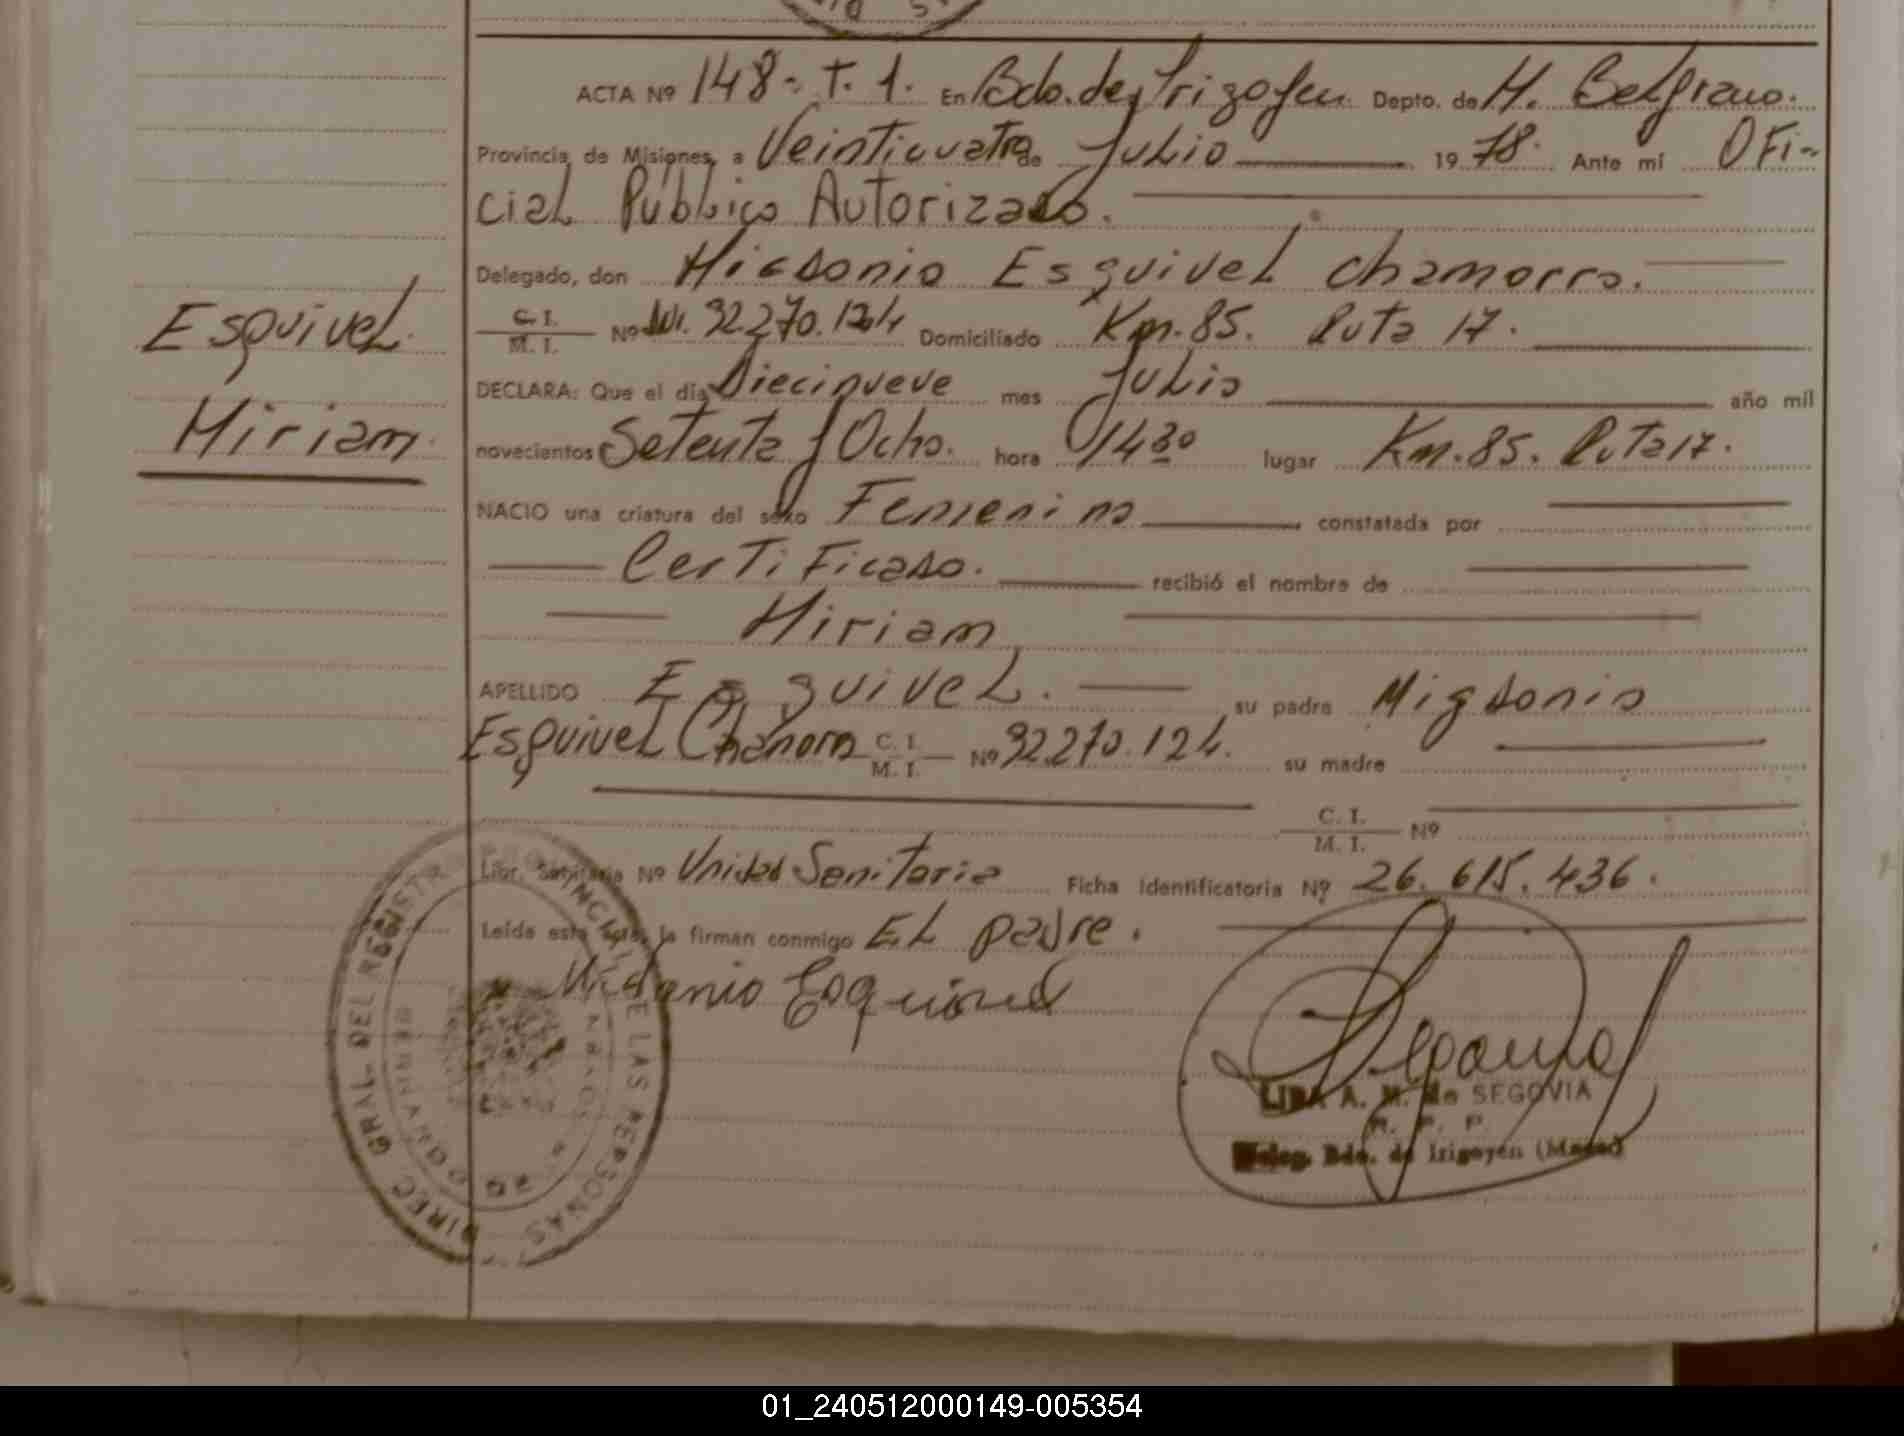 ACTA Nº 148- T. 1. En Bdo. de Irigoyen. Depto. de M. Belgrano.
Provincia de Misiones, a Veinticuatro de Julio 1978. Ante mí Ofi-
cial Público Autorizado.
Delegado, don Migdonio Esquivel Chamorro.
Esquivel
Miriam
C. I.
M. I. Nº 92.270.124 Domiciliado Km. 85. Ruta 17.
DECLARA: Que el día Diecinueve mes Julio año mil
novecientos Setenta y Ocho. hora 14 30 lugar Km. 85. Ruta 17.
NACIO una criatura del sexo Femenino constatada por
Certificado. recibió el nombre de
Miriam
APELLIDO Esquivel. su padre Migdonio
Esquivel Chamorro C. I.
M. I. Nº 92.270.124. su madre
C. I.
M. I. Nº
Libr. Sanitaria Nº Unidad Sanitaria Ficha Identificatoria Nº 26.615.436.
Leída esta acta, la firman conmigo El padre.
Migdonio Esquivel
DIREC. GRAL. DEL REGISTRO PROVINCIAL DE LAS PERSONAS
LIDA A. M. de SEGOVIA
R. P. P.
Deleg. Bdo. de Irigoyen (Mnes)
01_240512000149-005354